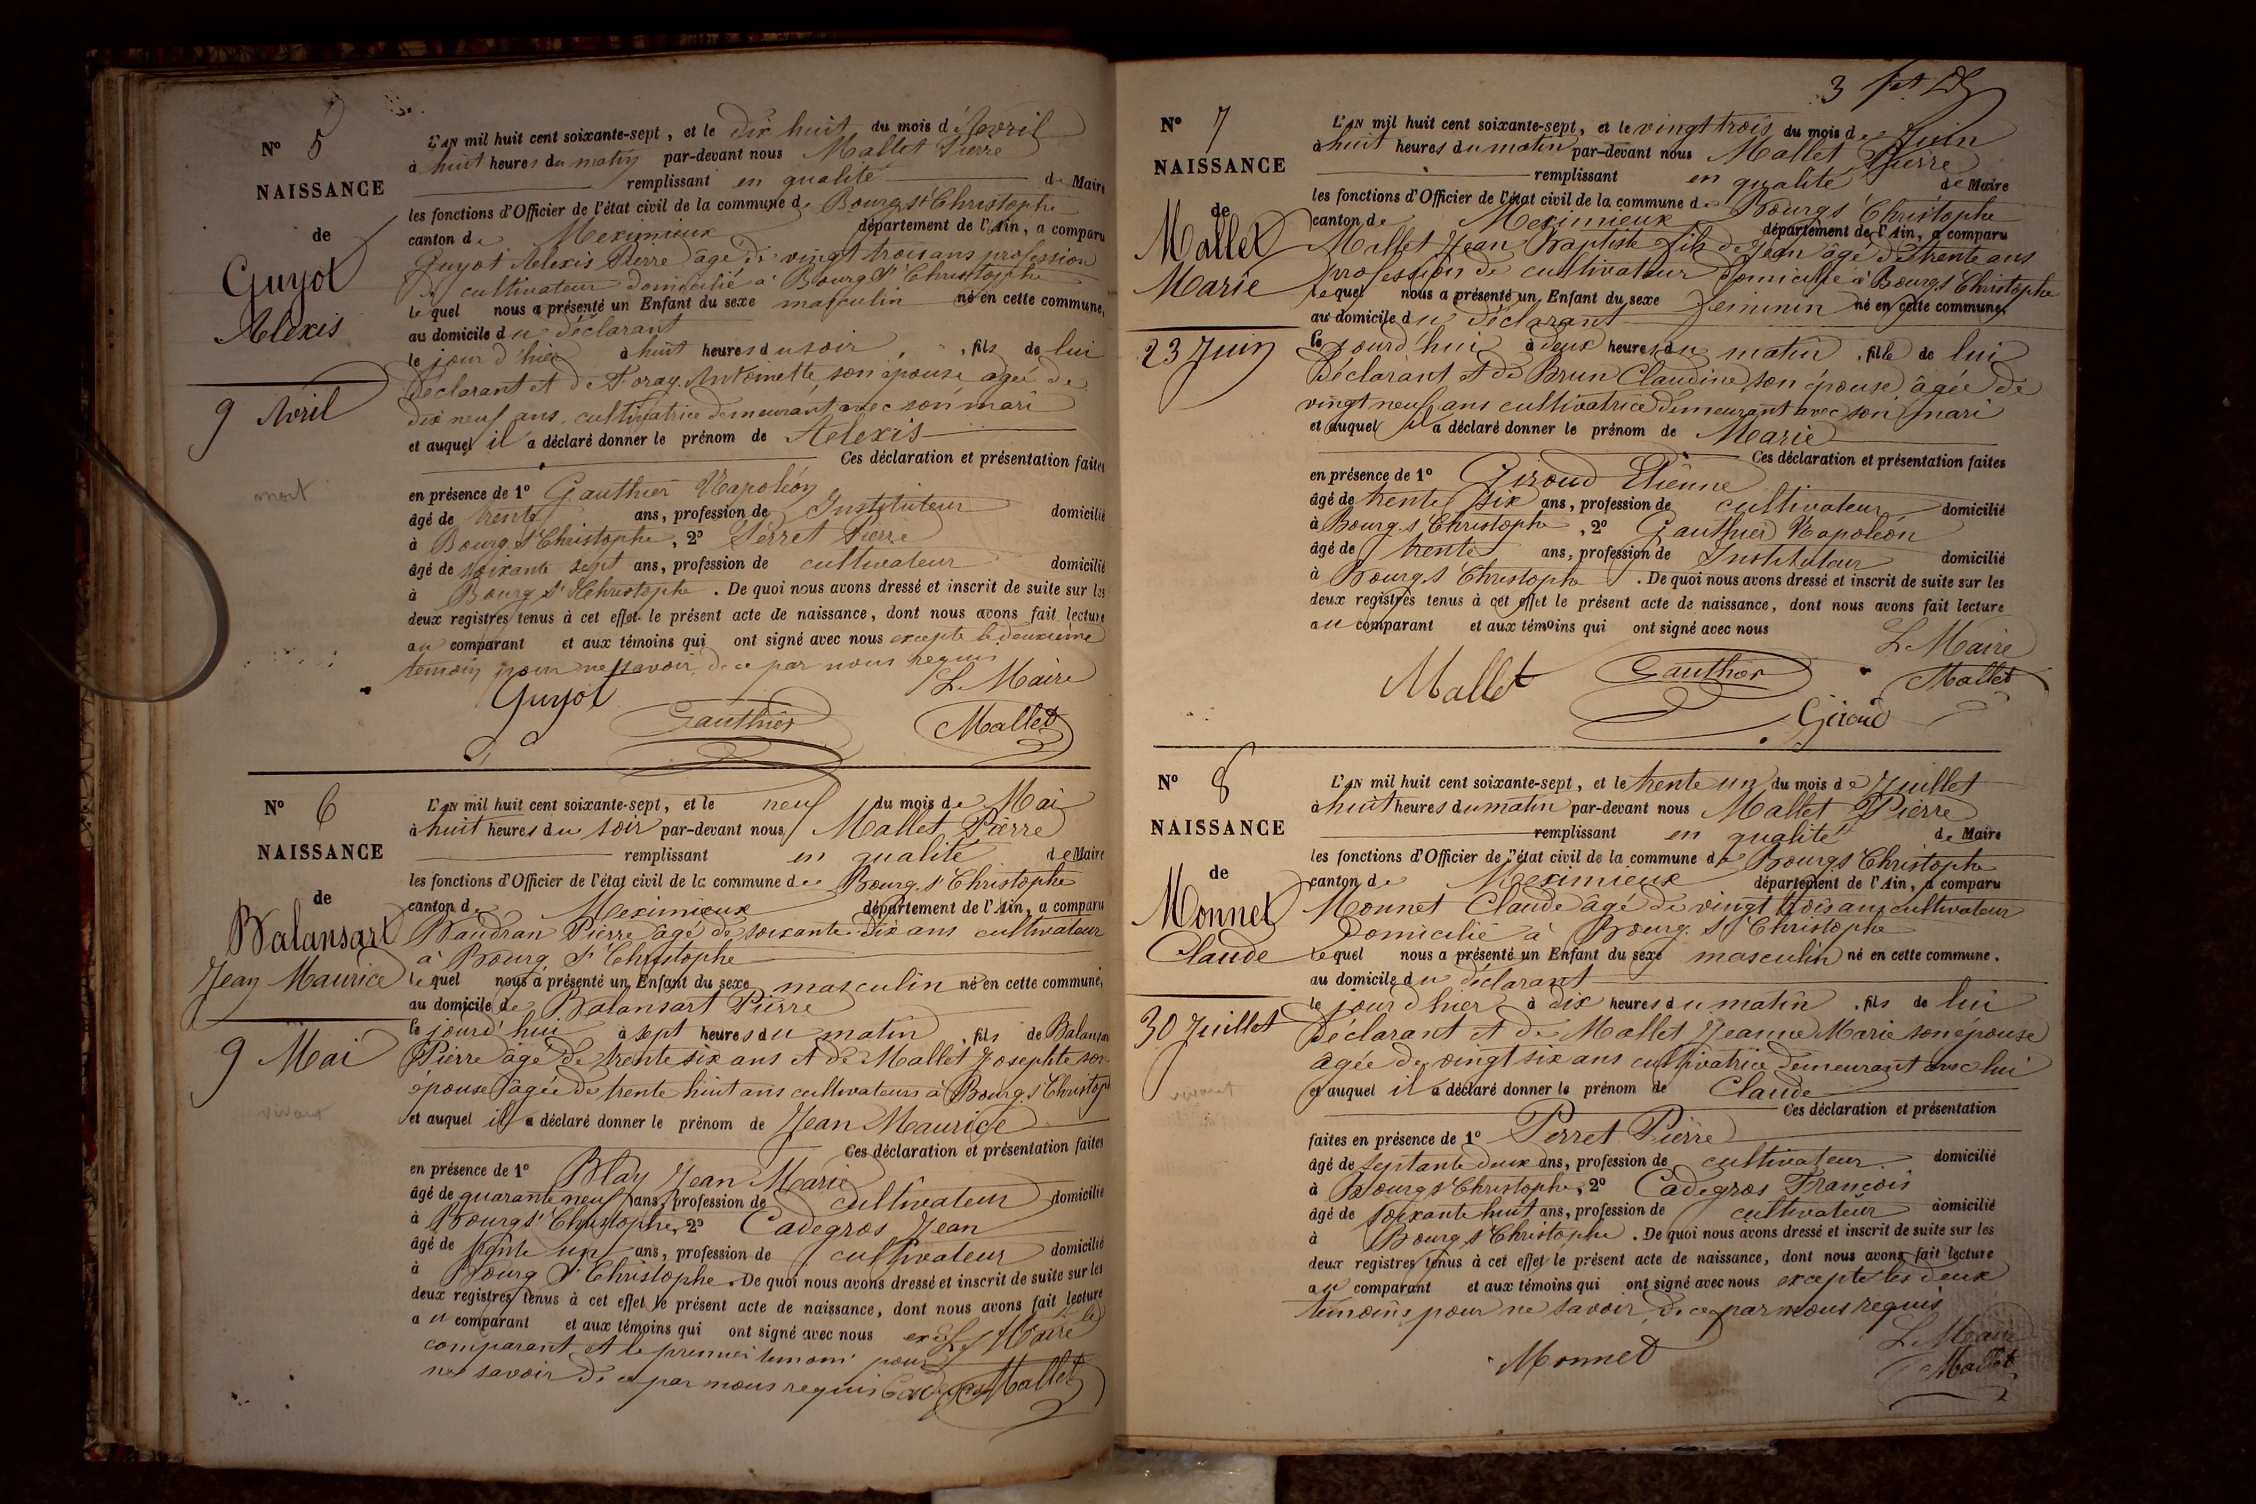 N° 5
NAISSANCE
de
Guyot
Alexis
9 Avril
mort
L'AN mil huit cent soixante-sept, et le dix huit du mois d'Avril
à huit heures du matin par-devant nous Mallet Pierre
remplissant en qualité de Maire
les fonctions d'Officier de l'état civil de la commune de Bourg St Christophe
canton de Meximieux département de l'Ain, a comparu
Guyot Alexis Pierre âgé de vingt trois ans profession
de cultivateur domicilié à Bourg St Christophe
le quel nous a présenté un Enfant du sexe masculin né en cette commune,
au domicile du déclarant
le jour d'hier à huit heures du soir, fils de lui
déclarant et de Foray Antoinette son épouse agée de
dix neuf ans, cultivatrice demeurant avec son mari
et auquel il a déclaré donner le prénom de Alexis
Ces déclaration et présentation faites
en présence de 1° Gauthier Napoléon
âgé de trente ans, profession de Instituteur domicilié
à Bourg St Christophe, 2° Perret Pierre
âgé de soixante sept ans, profession de cultivateur domicilié
à Bourg St Christophe. De quoi nous avons dressé et inscrit de suite sur les
deux registres tenus à cet effet le présent acte de naissance, dont nous avons fait lecture
au comparant et aux témoins qui ont signé avec nous excepté le deuxième
témoin pour ne savoir, de ce par nous requis
Guyot
Gauthier
Le Maire
Mallet
N° 6
NAISSANCE
de
Balansart
Jean Maurice
9 Mai
vivant
L'AN mil huit cent soixante-sept, et le neuf du mois de Mai
à huit heures du soir par-devant nous Mallet Pierre
remplissant en qualité de Maire
les fonctions d'Officier de l'état civil de la commune de Bourg St Christophe
canton de Meximieux département de l'Ain, a comparu
Baudran Pierre âgé de soixante dix ans cultivateur
à Bourg St Christophe
le quel nous a présenté un Enfant du sexe masculin né en cette commune,
au domicile de Balansart Pierre
le jourd'hui à sept heures du matin, fils de Balansart
Pierre âgé de trente six ans et de Mallet Josephte son
épouse âgée de trente huit ans cultivateurs à Bourg St Christophe
et auquel il a déclaré donner le prénom de Jean Maurice
Ces déclaration et présentation faites
en présence de 1° Blay Jean Marie
âgé de quarante neuf ans, profession de cultivateur domicilié
à Bourg St Christophe, 2° Cadegros Jean
âgé de trente un ans, profession de cultivateur domicilié
à Bourg St Christophe. De quoi nous avons dressé et inscrit de suite sur les
deux registres tenus à cet effet le présent acte de naissance, dont nous avons fait lecture
au comparant et aux témoins qui ont signé avec nous
comparant et le premier témoin pour
ne savoir de ce par nous requis
Le Maire
Cadegros Mallet
3
N° 7
NAISSANCE
de
Mallet
Marie
23 Juin
L'AN mil huit cent soixante-sept, et le vingt trois du mois de Juin
à huit heures du matin par-devant nous Mallet Pierre
remplissant en qualité de Maire
les fonctions d'Officier de l'état civil de la commune de Bourg St Christophe
canton de Meximieux département de l'Ain, a comparu
Mallet Jean Baptiste fils de Jean âgé de trente ans
profession de cultivateur domicilié à Bourg St Christophe
le quel nous a présenté un Enfant du sexe féminin né en cette commune,
au domicile du déclarant
le jourd'hui à deux heures du matin, fille de lui
déclarant et de Brun Claudine, son épouse, âgée de
vingt neuf ans cultivatrice demeurant avec son mari
et auquel il a déclaré donner le prénom de Marie
Ces déclaration et présentation faites
en présence de 1° Giroud Etienne
âgé de trente six ans, profession de cultivateur domicilié
à Bourg St Christophe, 2° Gauthier Napoléon
âgé de trente ans, profession de Instituteur domicilié
à Bourg St Christophe. De quoi nous avons dressé et inscrit de suite sur les
deux registres tenus à cet effet le présent acte de naissance, dont nous avons fait lecture
au comparant et aux témoins qui ont signé avec nous
Le Maire
Mallet
Gauthier
Mallet
Giroud
N° 8
NAISSANCE
de
Monnet
Claude
30 Juillet
L'AN mil huit cent soixante-sept, et le trente un du mois de Juillet
à huit heures du matin par-devant nous Mallet Pierre
remplissant en qualité de Maire
les fonctions d'Officier de l'état civil de la commune de Bourg St Christophe
canton de Meximieux département de l'Ain, a comparu
Monnet Claude âgé de vingt trois ans cultivateur
domicilié à Bourg St Christophe
le quel nous a présenté un Enfant du sexe masculin né en cette commune,
au domicile du déclarant
le jour d'hier à dix heures du matin, fils de lui
déclarant et de Mallet Jeanne Marie son épouse
agée de vingt six ans cultivatrice demeurant avec lui
et auquel il a déclaré donner le prénom de Claude
Ces déclaration et présentation
faites en présence de 1° Perret Pierre
âgé de septante deux ans, profession de cultivateur domicilié
à Bourg St Christophe, 2° Cadegros François
âgé de soixante huit ans, profession de cultivateur domicilié
à Bourg St Christophe. De quoi nous avons dressé et inscrit de suite sur les
deux registres tenus à cet effet le présent acte de naissance, dont nous avons fait lecture
au comparant et aux témoins qui ont signé avec nous excepté les deux
témoins pour ne savoir, de ce par nous requis
Le Maire
Monnet
Mallet